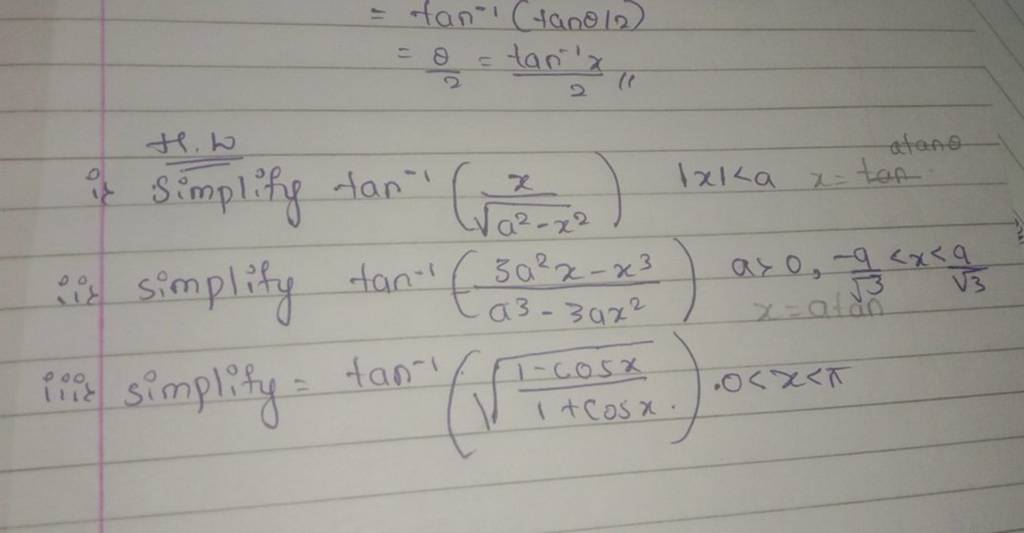 = tan⁻¹ (tanθ/2)
= θ/2 = tan⁻¹x/2 //
H.W
i) Simplify tan⁻¹ (x/√(a²-x²)) |x|<a x = tan atanθ
ii) simplify tan⁻¹ (3a²x-x³/a³-3ax²) a>0, -a/√3 <x< a/√3
x=atan
iii) simplify = tan⁻¹ (√(1-cosx/1+cosx.)) .0<x<π